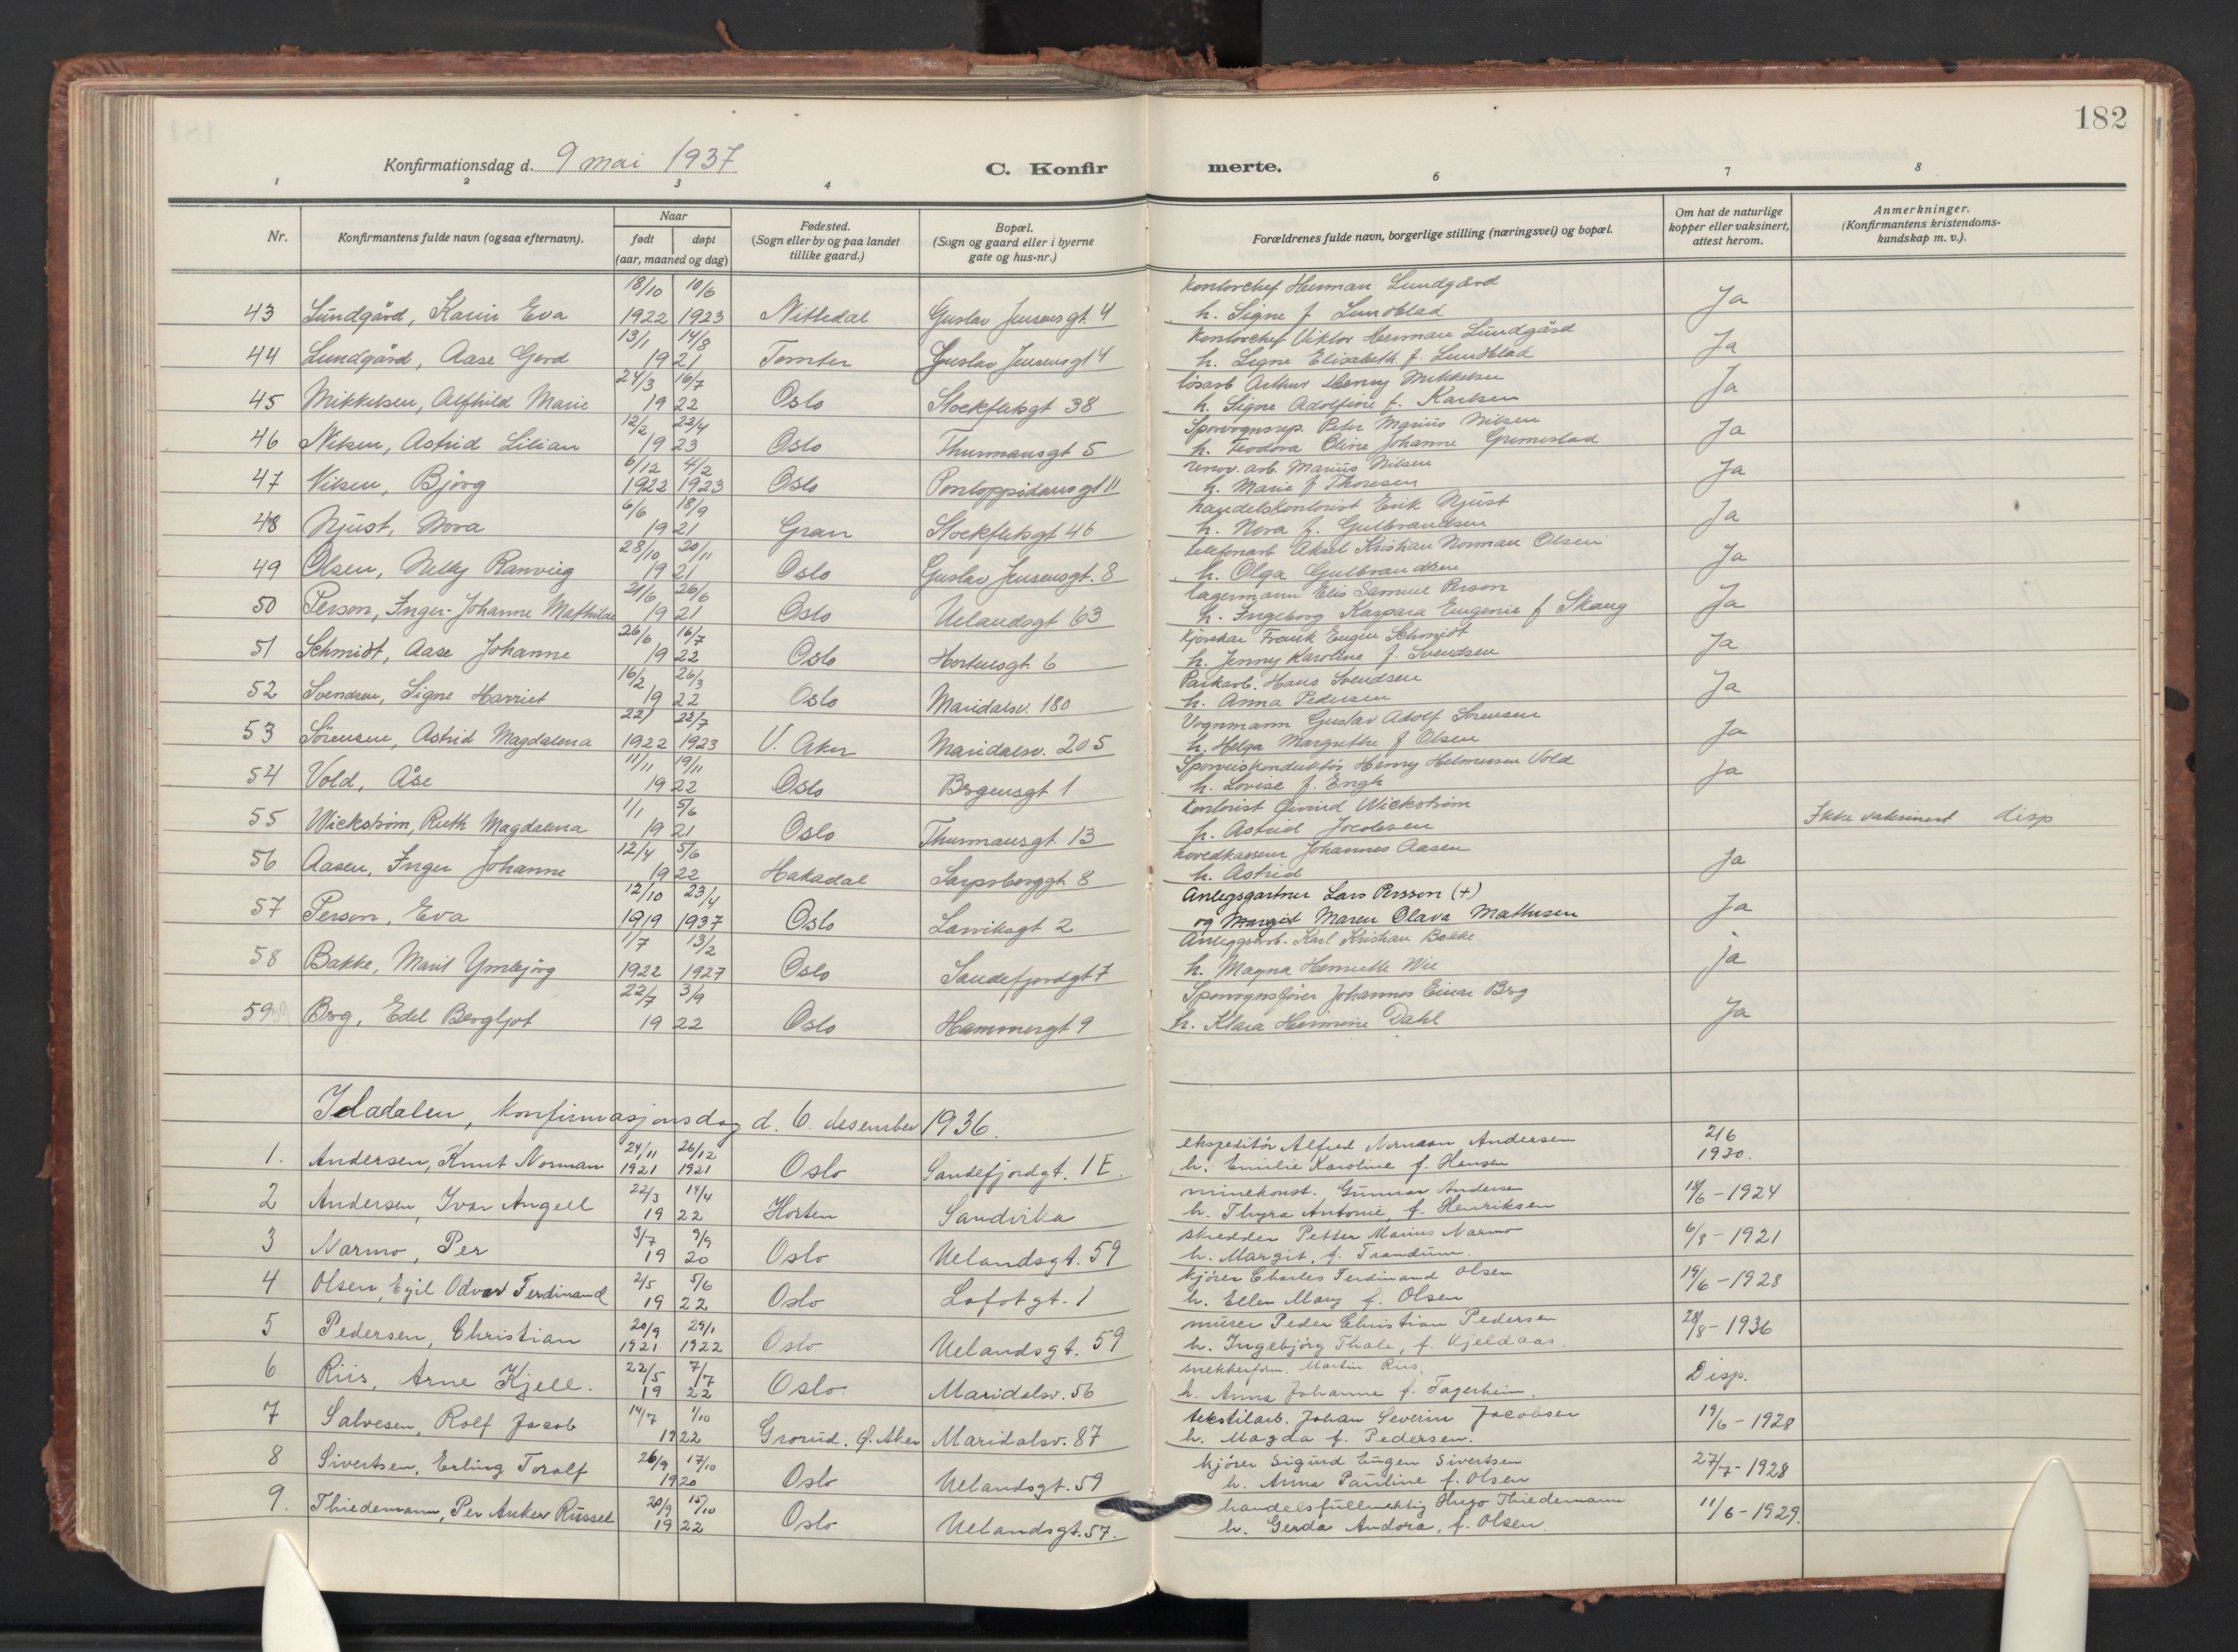 182
Konfirmationsdag d. 9 mai 1937
C. Konfir merte.
1 2 3 4 6 7 8
Nr.
Konfirmantens fulde navn (ogsaa efternavn).
Naar
født døpt
(aar, maaned og dag)
Fødested.
(Sogn eller by og paa landet
tillike gaard.)
Bopæl.
(Sogn og gaard eller i byerne
gate og hus-nr.)
Forældrenes fulde navn, borgerlige stilling (næringsvei) og bopæl.
Om hat de naturlige
kopper eller vaksinert,
attest herom.
Anmerkninger.
(Konfirmantens kristendoms-
kundskap m. v.).
18/10 10/6 Kontorchef Herman Lundgård
43 Lundgård, Karin Eva 1922 1923 Nittedal Gustav Jensensgt. 4 h. Signe f Lundblad Ja
13/1 14/8 Kontorchef Viktor Herman Lundgård
44 Lundgård, Aase Gerd 1921 Tomter Gustav Jensensgt 4 h. Signe Elisabeth f. Lundblad Ja
24/3 16/7 løsarb Arthur Henry Mikkelsen
45 Mikkelsen, Alfhild Marie 1922 Oslo Stockfletsgt 38 h. Signe Adolfine f. Karlsen Ja
12/2 22/4 Sporvognsrep. Peter Marius Nilsen
46 Nilsen, Astrid Lilian 1923 Oslo Thurmansgt 5 h. Teodora Oline Johanne Grimestad Ja
6/12 4/2 renov. arb. Marius Nilsen
47 Nilsen, Bjørg 1922 1923 Oslo Pontoppidansgt 11 h. Marie f Thoresen Ja
6/6 18/9 handelskontorist Erik Njust
48 Njust, Nora 1921 Gran Stockfletsgt 46 h. Nora f. Gulbrandsen Ja
28/10 20/11 telefonarb Aksel Kristian Norman Olsen
49 Olsen, Nelly Ranveig 1921 Oslo Gustav Jensensgt. 8 h. Olga Gulbrandsen Ja
21/6 26/6 lagermann Elis Samuel Person
50 Person, Inger-Johanne Mathilde 1921 Oslo Uelandsgt 63 h. Ingeborg Kaspara Eugenie f Skaug Ja
26/6 16/7 Kjørekar Frank Eugen Schmidt
51 Schmidt, Aase Johanne 1922 Oslo Hortensgt. 6 h. Jenny Karoline f. Svendsen Ja
16/2 26/3 Parkarb. Hans Svendsen
52 Svendsen, Signe Harriet 1922 Oslo Maridalsv. 180 h. Anna Pedersen Ja
22/ 22/7 Vognmann Gustav Adolf Sørensen
53 Sørensen, Astrid Magdalena 1922 1923 V. Aker Maridalsv. 205 h. Helga Margrethe f Olsen Ja
11/11 19/11 Sporveiskonduktør Henry Helmersen Vold
54 Vold, Åse 1922 Oslo Bergensgt 1 h. Lovise f. Engh Ja
1/1 5/6 Kontorist Øivind Wickstrøm
55 Wickstrøm, Ruth Magdalena 1921 Oslo Thurmansgt. 13 h. Astrid Jacobsen Ikke vaksinert disp
12/4 5/6 hovedkasserer Johannes Aasen
56 Aasen, Inger Johanne 1922 Hakadal Sarpsborggt. 8 h. Astrid Ja
12/10 23/4 Anlegsgartner Lars Persson (+)
57 Person, Eva 1919 1937 Oslo Larviksgt 2 og Margit Maren Olava Mathisen Ja
1/7 13/2 Anleggsarb. Karl Kristian Bakke
58 Bakke, Marit Ymbjørg 1922 1927 Oslo Sandefjordgt 7 h. Magna Henriette Wie ja
22/7 3/9 Sporvognsfører Johannes Einar Berg
59 Berg, Edel Bergljot 1922 Oslo Hammersgt 9 h. Klara Hermine Dahl Ja
Iladalen, konfirmasjonsdag d. 6. desember 1936.
24/11 26/12 ekspeditør Alfred Norman Andersen 2/6
1. Andersen, Knut Norman 1921 1921 Oslo Sandefjordgt. 1 E. h. Emilie Karoline f. Hansen 1930.
22/3 14/4 minekonst. Gunnar Andersen
2 Andersen, Ivar Angell 1922 Horten Sandvika h. Thyra Antonie, f. Henriksen 18/6 - 1924
3/7 9/9 skredder Petter Marius Narmo
3 Narmo, Per 1920 Oslo Uelandsgt. 59 h. Margit, f. Trandum. 6/8 - 1921
2/5 5/6 kjører Charles Ferdinand Olsen
4 Olsen, Egil Odvar Ferdinand 1922 Oslo Lofotgt. 1 h. Ellen Mary f. Olsen 19/6 - 1928
20/9 29/1 murer Peder Christian Pedersen
5 Pedersen, Christian 1921 1922 Oslo Uelandsgt. 59 h. Ingebjørg Thale, f. Kjeldaas. 28/8 - 1936
22/5 7/7 snekkerform. Martin Riis.
6 Riis, Arne Kjell. 1922 Oslo. Maridalsv. 56 h. Anna Johanne f. Fagerheim. Disp.
14/7 1/10 tekstilarb. Johan Severin Jacobsen
7 Salvesen, Rolf Jacob 1922 Grorud. Ø. Aker Maridalsv. 87 h. Magda f. Pedersen. 19/6 - 1928
26/9 17/10 kjører Sigurd Eugen Sivertsen
8 Sivertsen, Erling Toralf 1920 Oslo Uelandsgt. 59 h. Anna Pauline f. Olsen 27/7 - 1928
20/9 15/10 handelsfullmektig Hugo Thiedemann
9. Thiedemann, Per Anker Russel 1922 Oslo Uelandsgt. 57. h. Gerda Andora, f. Olsen. 11/6 - 1929.